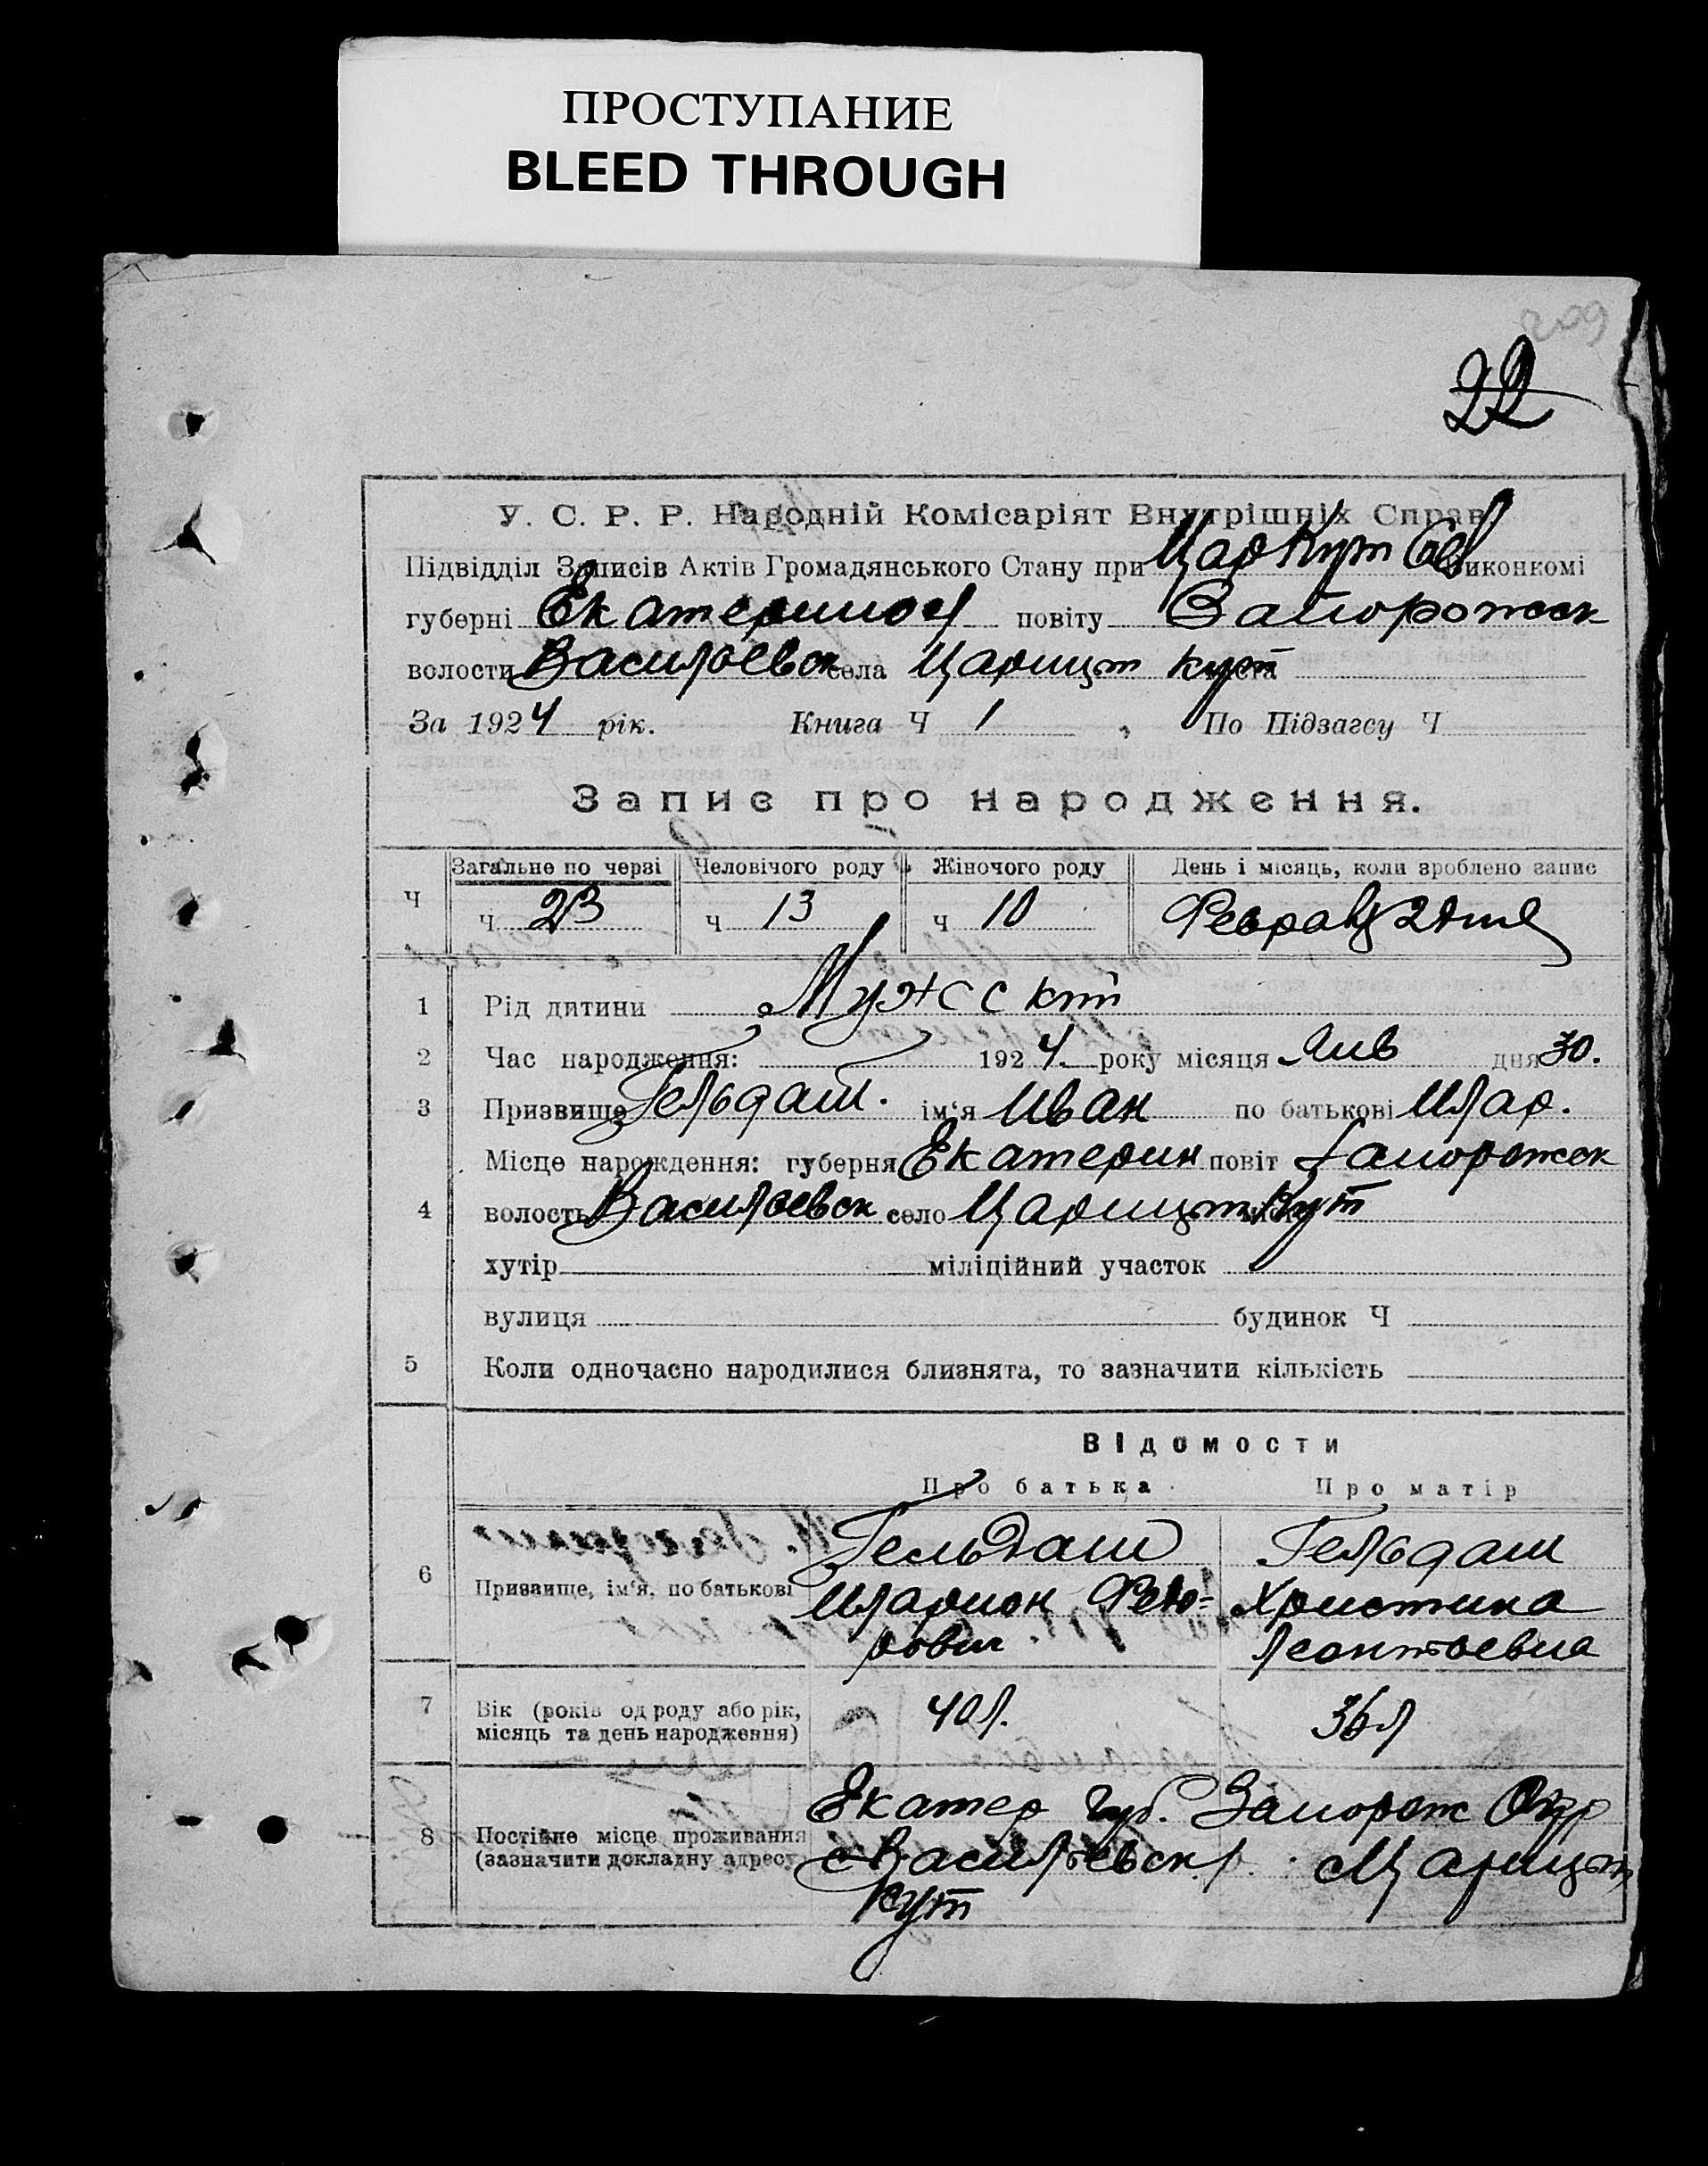 ПРОСТУПАНИЕ
BLEED THROUGH
209
22
У. С. Р. Р. Народній Комісаріят Внутрішніх Справ
Підвідділ Записів Актів Громадянського Стану при Цар Кут Сел виконкомі
губерні Екатеринос повіту Запорожск
волости Васильевск села Царицт Кут міста
За 1924 рік. Книга Ч 1 , По Підзагсу Ч
Запис про народження.
Загальне по черзі Человічого роду Жіночого роду День і місяць, коли зроблено запис
Ч Ч 23 Ч 13 Ч 10 Февраля
1 Рід дитини Мужск
2 Час народження: 1924 року місяця Янв дня 30.
3 Призвище Гельдаш. ім'я Иван по батькові Илар.
Місце нарождення: губерня Екатерин повіт Запорожск
4 волость Васильевск село Царицт Кут
хутір міліційний участок
вулиця будинок Ч
5 Коли одночасно народилися близнята, то зазначити кількість
Відомости
Про батька Про матір
Гельдаш Гельдаш
6 Призвище, ім'я, по батькові Иларион Фео- Христина
рович Леонтьевна
7 Вік (років од роду або рік, місяць та день народження) 40 л. 36 л
Екатер губ. Запорож Окр
8 Постійне місце проживання (зазначити докладну адресу) Васильевск р. с Царицт
Кут